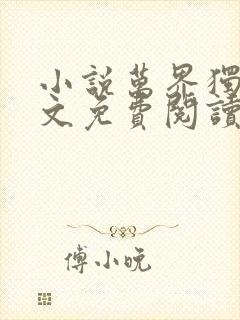 小說萬界獨
文免費閱讀
傅小晚